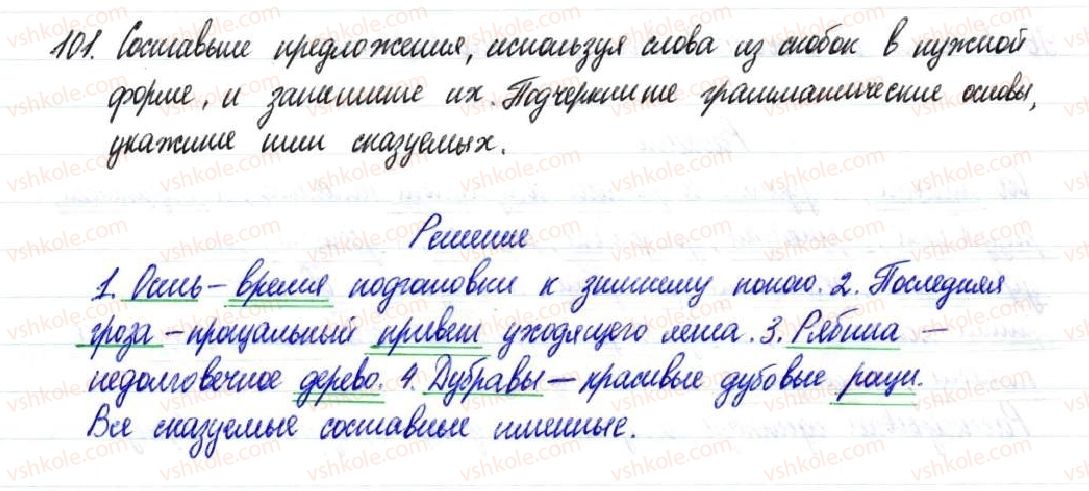 101. Составьте предложения, используя слова из скобок в нужной
форме, и запишите их. Подчеркните грамматические основы,
укажите тип сказуемых.
Решение
1. Осень – время подготовки к зимнему покою. 2. Последняя
гроза – прощальный привет уходящего лета. 3. Рябина –
недолговечное дерево. 4. Дубравы – красивые дубовые рощи.
Все сказуемые составные именные.